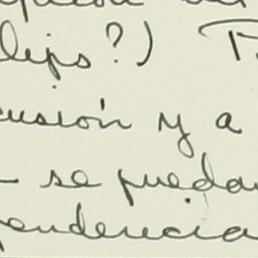 lips?)
cusión y a
- se puedan
pendencia